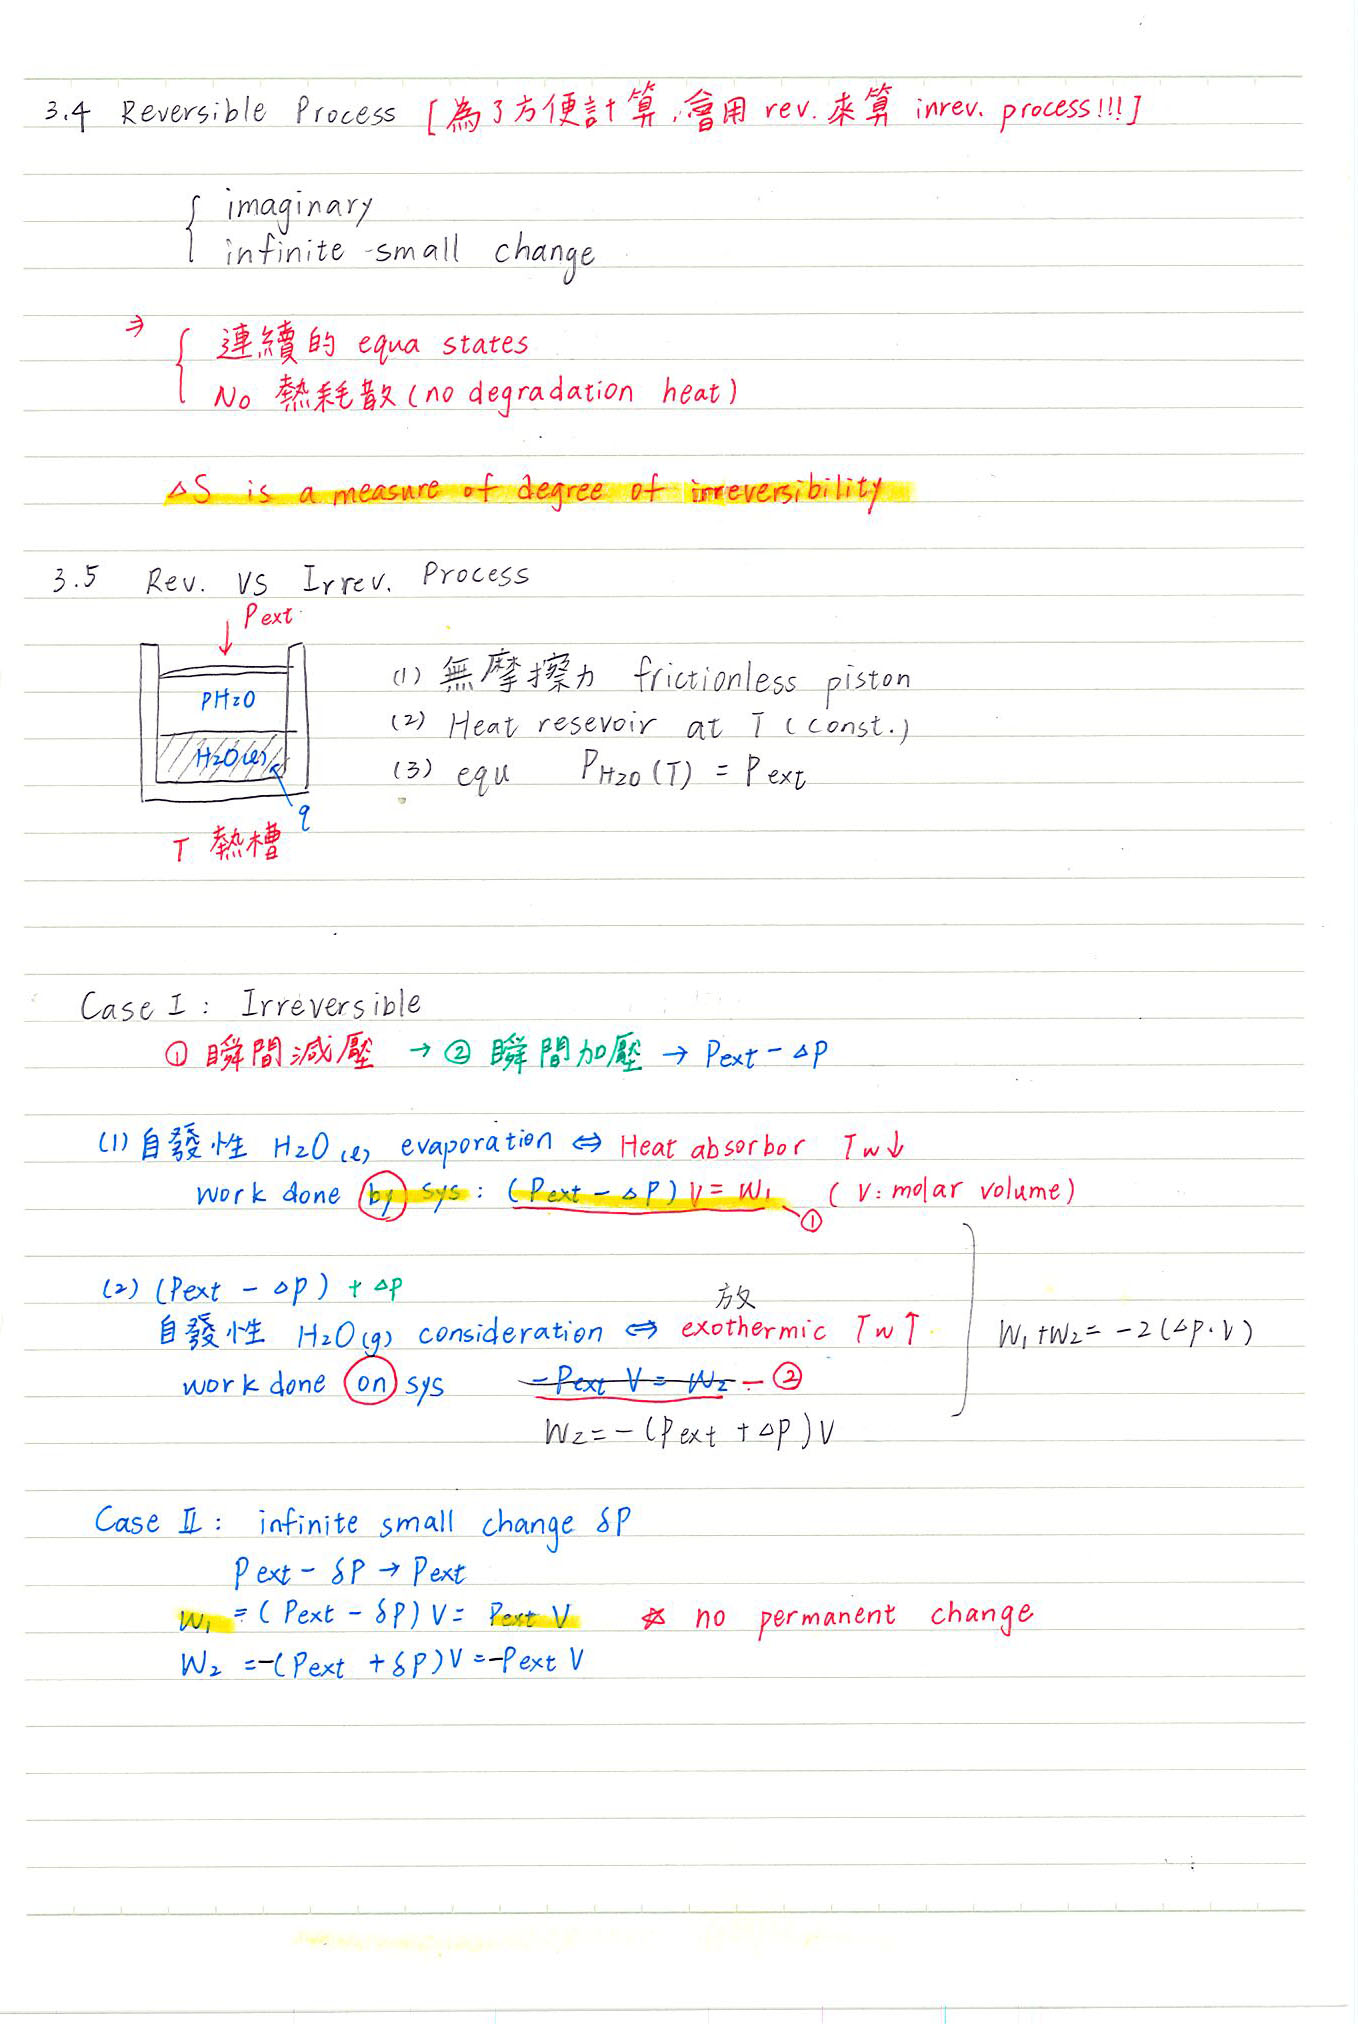 3.4 Reversible Process [為了方便計算，會用 rev. 來算 inrev. process!!!]
imaginary
infinite-small change
⇒ 連續的 equa states
No 熱耗散 (no degradation heat)
ΔS is a measure of degree of irreversibility
3.5 Rev. VS Irrev. Process
Pext
PH2O
H2O(l)
q
T 熱槽
(1) 無摩擦力 frictionless piston
(2) Heat resevoir at T (const.)
(3) equ PH2O(T) = Pext
Case I : Irreversible
① 瞬間減壓 → ② 瞬間加壓 → Pext - ΔP
(1) 自發性 H2O(l) evaporation ⇔ Heat absorbor Tw↓
work done by sys : (Pext - ΔP) V = W1 ① (V: molar volume)
(2) (Pext - ΔP) + ΔP
放
自發性 H2O(g) consideration ⇔ exothermic Tw↑
work done on sys -Pext V = W2 - ②
W2 = -(Pext + ΔP) V
W1 + W2 = -2(ΔP·V)
Case II : infinite small change δP
Pext - δP → Pext
W1 = (Pext - δP) V = Pext V ☆ no permanent change
W2 = -(Pext + δP) V = -Pext V